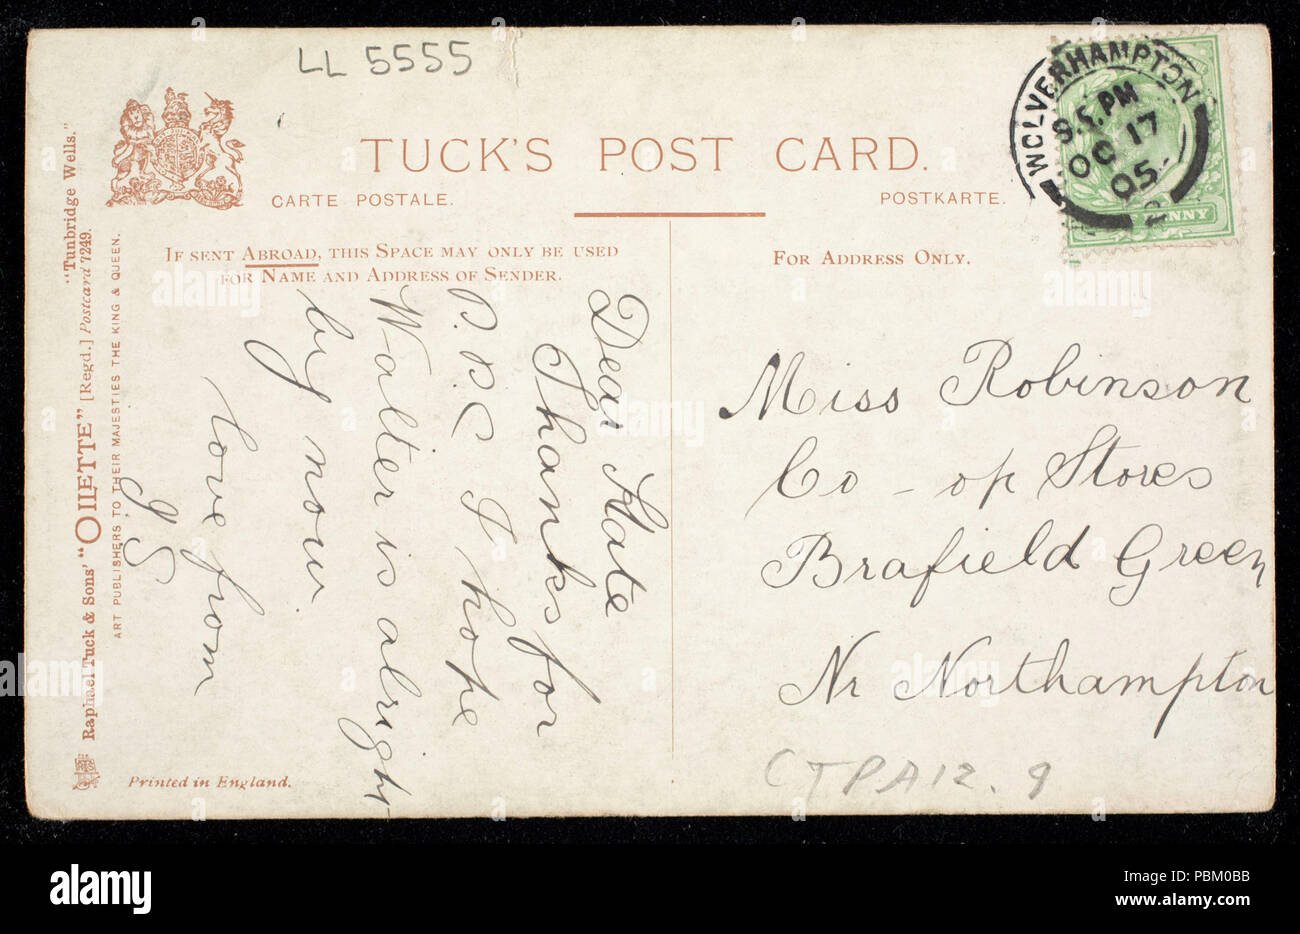 LL 5555
TUCK'S POST CARD.
CARTE POSTALE.
POSTKARTE.
IF SENT ABROAD, THIS SPACE MAY ONLY BE USED
FOR NAME AND ADDRESS OF SENDER.
FOR ADDRESS ONLY.
WOLVERHAMPTON
8.5.PM
OC 17
05
2
PENNY
Dear Kate
Thanks for
P.P.C I hope
Walter is alright
by now.
love from
J.S
Miss Robinson
Co-op Stores
Brafield Green
Nr Northampton
CTPA12.9
"Tunbridge Wells."
Raphael Tuck & Sons' "OILETTE" [Regd.] Postcard 7249.
ART PUBLISHERS TO THEIR MAJESTIES THE KING & QUEEN.
Printed in England.
alamy
Image ID: PBM0BB
www.alamy.com